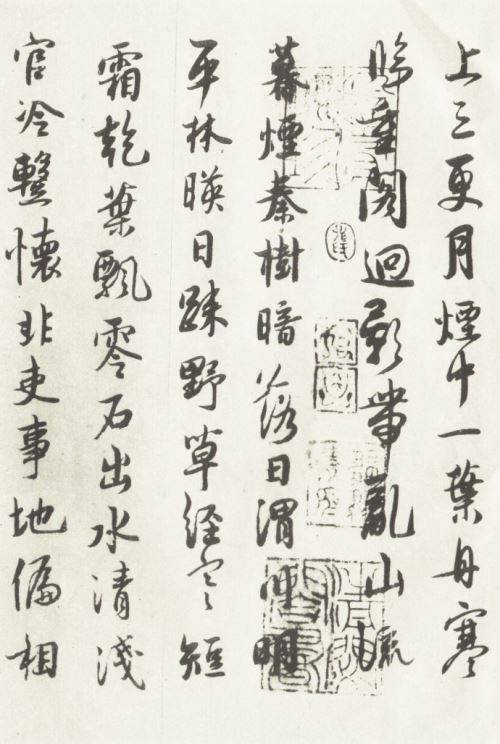 上三更月煙中一葉舟寒
歸重閣迥影帶亂山流
暮煙秦樹暗落日渭川明
平林暎日疎野草經寒短
霜乾葉飄零石出水清淺
官冷繫懷非吏事地偏相